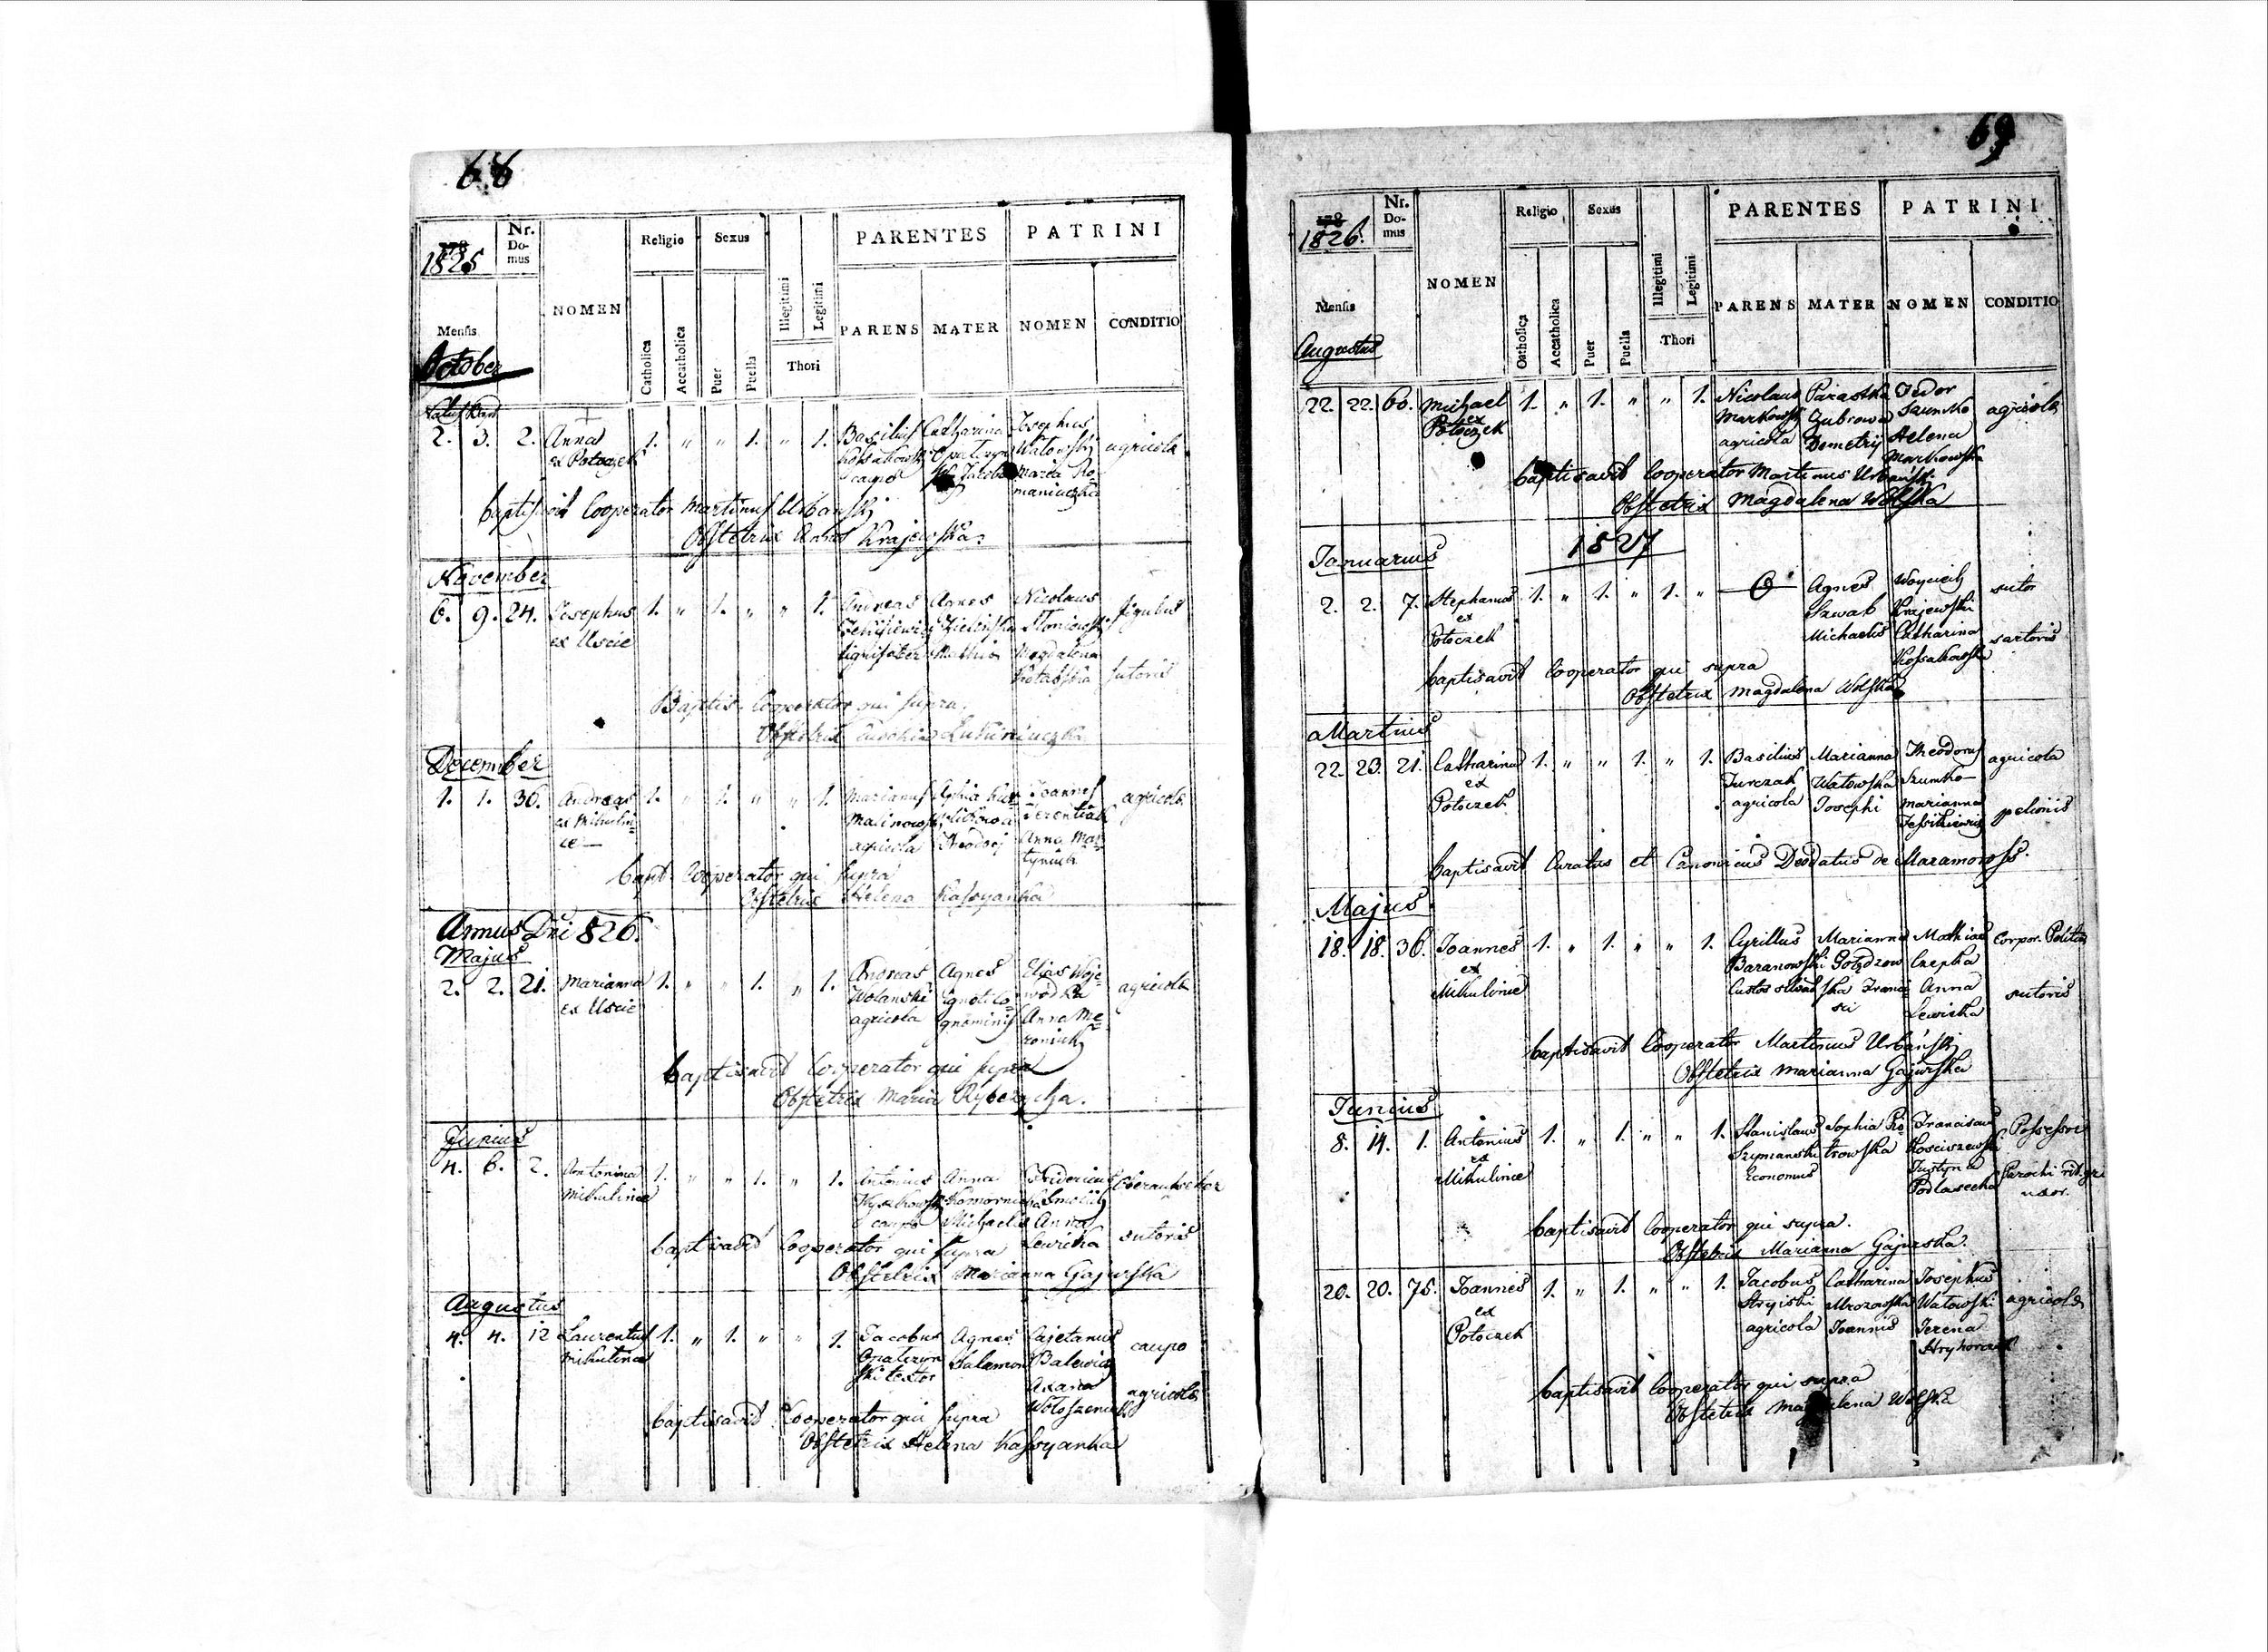 68
178
1825
Nr. Do- mus
NOMEN
Religio
Sexus
Illegitimi
Legitimi
PARENTES
PATRINI
Mensis
October
Catholica
Accatholica
Puer
Puella
Thori
PARENS
MATER
NOMEN
CONDITIO
2. 3. 2. Anna 1. " " 1. " 1. Basilius Catharina Josephus agricola
ex Potoczek Watowski
caupo Maria Ro-
maniuczka
baptisavit Cooperator Martinus Urbanski
Obstetrix Anna Krajewska.
November
6. 9. 24. Josephus 1. " 1. " " 1. Andreas Agnes Nicolaus figulus
ex Uscie Zielinska
Mathia Magdalena
sutoris
Baptis. Cooperator qui supra.
Obstetrix
December
1. 1. 36. Andreas 1. " 1. " " 1. Marianus Joannes agricola
ex Mikulin- Malinowski Terentiak
ce agricola Anna Mar-
tyniuk
bapt. Cooperator qui supra
Obstetrix Helena Kassyanka
Annus Dni 826.
Majus
2. 2. 21. Marianna 1. " " 1. " 1. Andreas Agnes Elias Woje- agricola
ex Uscie Wolanski ignoti co- wodka
agricola gnominis Anna Me-
roniuk
baptisavit Cooperator qui supra
Obstetrix Maria Ryberzcha.
Junius
4. 6. 2. Antonina 1. " " 1. " 1. Antonius Anna Fridericus
Mikulince Komornicka
caupo Michaelis Anna
Lewicka sutoris
baptisavit Cooperator qui supra
Obstetrix Marianna Gajurska
Augustus
4. 4. 12 Laurentius 1. " 1. " " 1. Jacobus Agnes Cajetanus caupo
Mikulince Salamon Balewicz
Axana agricola
baptisavit Cooperator qui supra
Obstetrix Helena Kassyanka
69
178
1826.
Nr. Do- mus
NOMEN
Religio
Sexus
Illegitimi
Legitimi
PARENTES
PATRINI
Mensis
Augustus
Catholica
Accatholica
Puer
Puella
Thori
PARENS
MATER
NOMEN
CONDITIO
22. 22. 60. Michael 1. " 1. " " 1. Nicolaus Paraska Fedor agricola
ex Markowski Zubrowa Szumko
Potoczek agricola Demetrij Helena
Markowska
baptisavit Cooperator Martinus Urbański
Obstetrix Magdalena Wolska
1827
Januarius
2. 2. 7. Stephanus 1. " 1. " 1. " Agnes Woyciech sutor
ex Sawab Krajewski
Potoczek Michaelis Catharina sartoris
Kossakowska
baptisavit Cooperator qui supra
Obstetrix Magdalena Wolska
Martius
22. 23. 21. Catharina 1. " " 1. " 1. Basilius Marianna Theodorus agricola
ex Jurczak Watowska Szumko
Potoczek agricola Josephi Marianna pelionis
baptisavit Curatus et Canonicus Deodatus de Maramoross.
Majus
18. 18. 36. Joannes 1. " 1. " " 1. Cyrillus Marianna Mathias Corpor. Politiae
ex Baranowski Gołędzow Czepka
Mikulince Custos silvae ska Franci- Anna sutoris
sci Lewicka
baptisavit Cooperator Martinus Urbański
Obstetrix Marianna Gajurska
Junius
8. 14. 1. Antonius 1. " 1. " " 1. Stanislaus Sophia Pio- Franciscus Possessor
ex Szymanski trowska Kosciszewski
Mikulince Economus Justyna Parochi rit. gr.
Podlasecka uxor.
baptisavit Cooperator qui supra.
Obstetrix Marianna Gajurska.
20. 20. 75. Joannes 1. " 1. " " 1. Jacobus Catharina Josephus agricola
ex Stryiski Mrozowska Watowski
Potoczek agricola Joannis Jerena
Hryhorczuk
baptisavit Cooperator qui supra
Obstetrix Magdalena Wolska